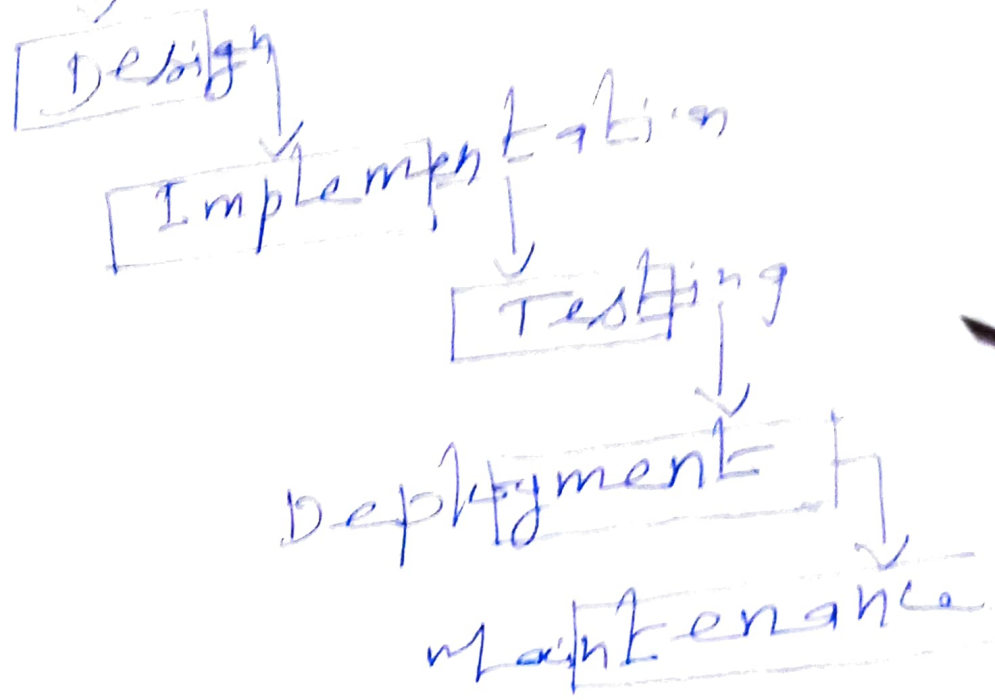 Design
Implementation
Testing
Deployment
Maintenance